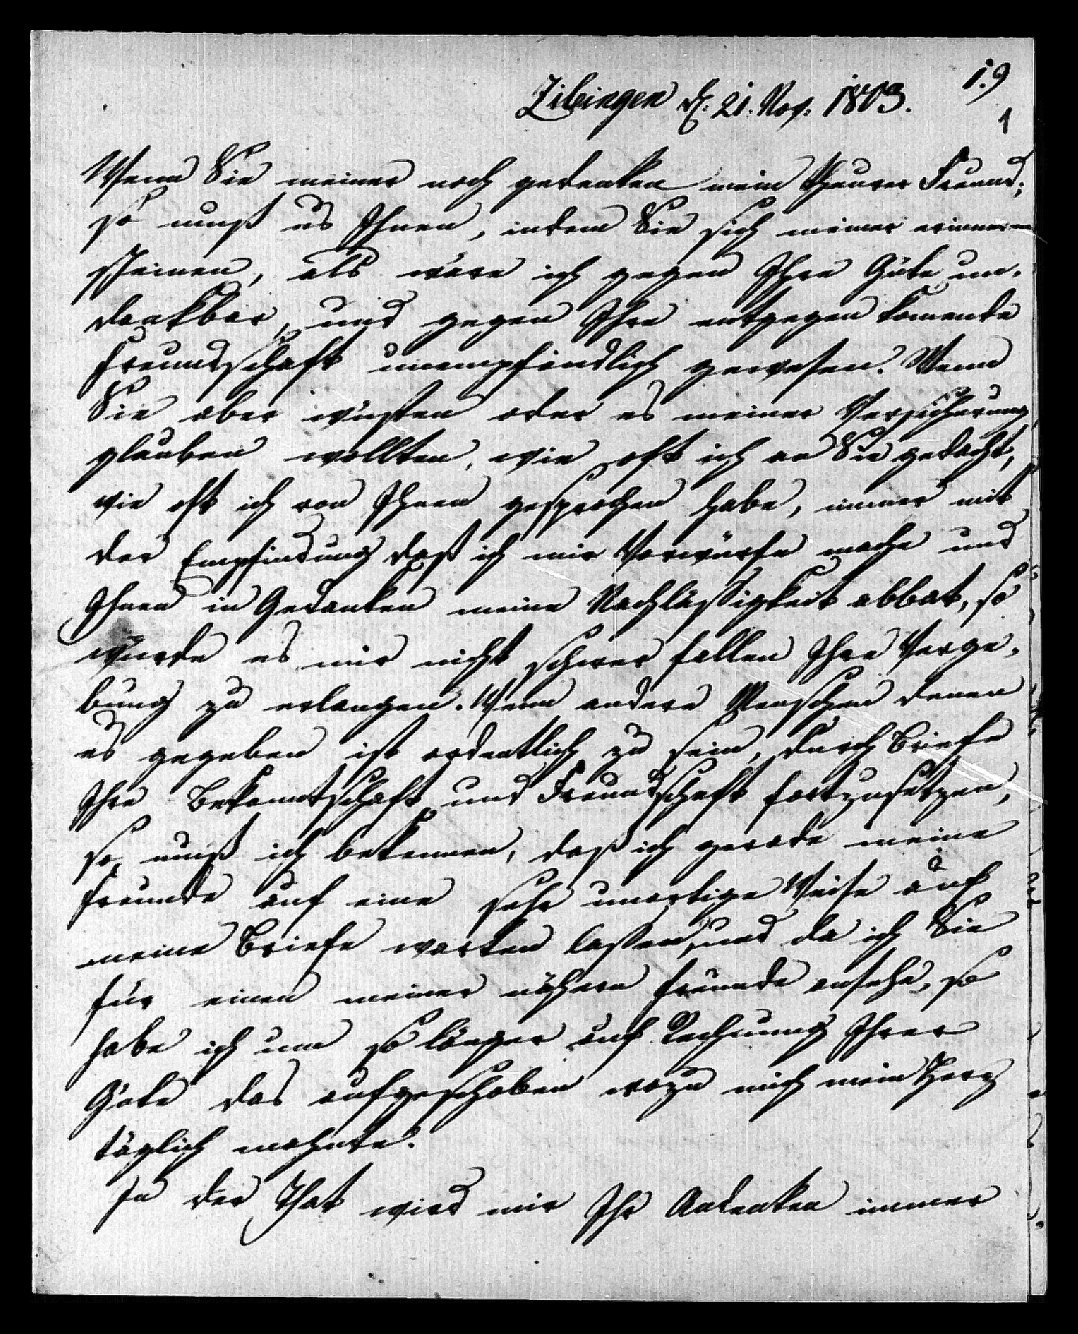 i.9
Zibingen d. 21. Nov. 1803.
1
Wenn Sie meiner noch gedenken mein theurer Freund,
so muß es Ihnen, indem Sie sich meiner erinnern
scheinen, als wäre ich gegen Ihre Güte un-
dankbar, und gegen Ihre entgegen komende
Freundschaft unempfindlich gewesen. Wenn
Sie aber wüßten oder es meiner Versicherung
glauben wollten, wie oft ich an Sie gedacht,
wie oft ich von Ihnen gesprochen habe, immer mit
der Empfindung daß ich mir Vorwürfe mache und
Ihnen in Gedanken meine Nachläßigkeit abbat, so
würde es mir nicht schwer fallen Ihre Verge-
bung zu erlangen. Wenn andere Menschen denen
es gegeben ist ordentlich zu sein, durch Briefe
Ihre Bekanntschaft und Freundschaft fortzusetzen,
so muß ich bekennen, daß ich gerade meine
Freunde auf eine sehr unartige Weise auf
meine Briefe warten laßen, und da ich Sie
für einen meiner nähern Freunde ansehe, so
habe ich um so länger auf Rechnung Ihrer
Güte das aufgeschoben wozu mich mein Herz
täglich mahnte.
In der That wird mir Ihr Andenken immer